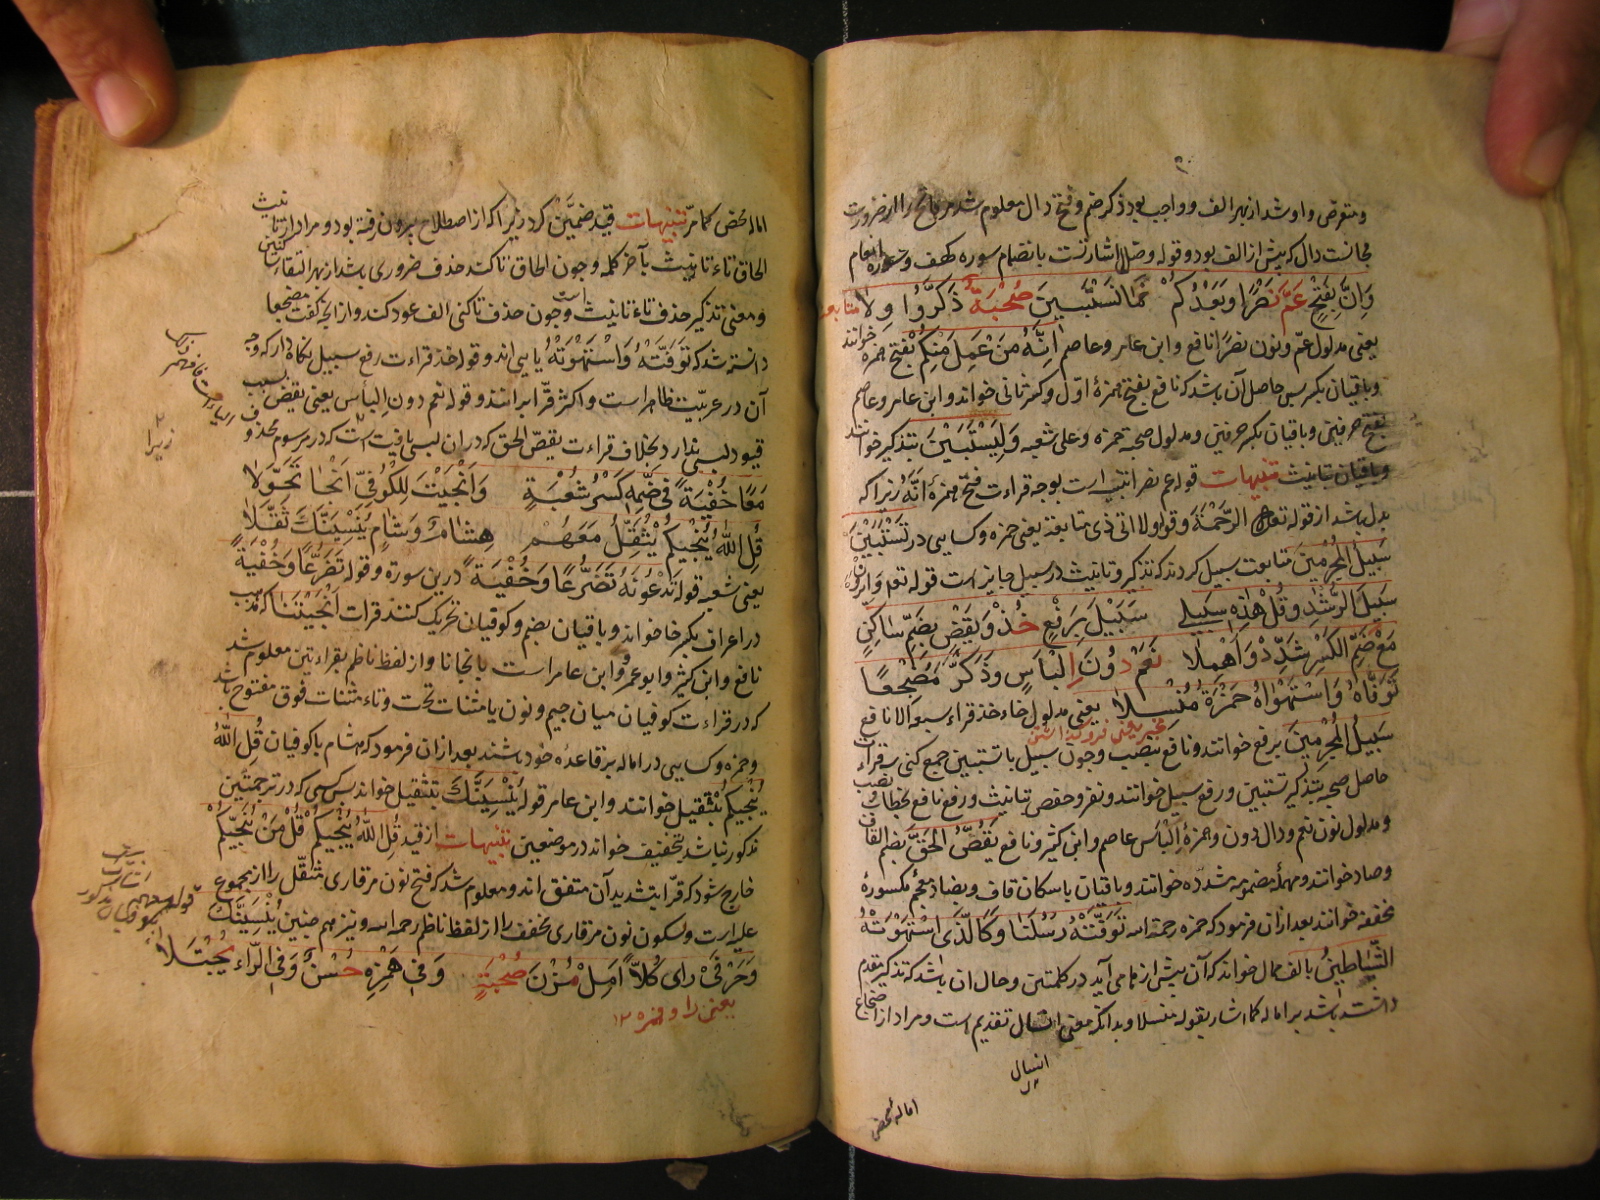 ومتعرض واو شد از بهر الف و واجب بود ذکر ضم وفتح دال معلوم شد
مجانست دال که پیش از الف بود وقوله وصلا اشارتست بانضمام سوره کهف
وَاِنَّ بِفَتْحٍ عَمَّ نَصْرًا وَبَعْدُ كُمْ نَمَا تَسْتَبِينَ صُحْبَةٌ ذَكَّرُوا وِلَا
یعنی مدلول عمّ ونون نصرًا نافع وابن عامر وعاصم اَنَّهُ مَنْ عَمِلَ مِنْكُمْ بفتح همزه خوانند
وباقیان بکسر پس حاصل آن باشد که نافع بفتح همزهٔ اوّل وکسر ثانی خواند وابن عامر وعاصم
بفتح حرفین وباقیان بکسر حرفین ومدلول صحبه حمزه وعلی شعبه وَلِيَسْتَبِينَ بتذکیر خوانند
وباقیان بتانیث تنبیهات قوله عم نصرا تنبیه است بوجه قراءت فتح همزهٔ اَنَّهُ زیرا که
بدل باشد از قوله تعالی الرَّحْمَةَ وقوله ولا ای ذی متابعة یعنی حمزه وکسایی در تَسْتَبِينَ
سَبِيلُ الْمُجْرِمِينَ متابعت سبیل کردند که تذکیر وتانیث در سبیل جایز است قوله تعم
سَبِيلَ الرُّشْدِ وقُلْ هٰذِهِ سَبِيلِي سَبِيلَ بِرَفْعٍ خُذْ وَيَقْضِ بِضَمِّ سَاكِنٍ
مَعْ ضَمِّ الْكَسْرِ شَدِّدْ وَاَهْمِلَا نَعَمْ دُونَ اِلْبَاسٍ وَذَكَّرَ مُضْجِعًا
تَوَفَّاهُ وَاسْتَهْوَاهُ حَمْزَةُ مُنْسِلَا یعنی مدلول خاء خذ قراء سبعه الا نافع
سَبِيلُ الْمُجْرِمِينَ برفع خوانند ونافع بنصب وچون سبیل با تستبین جمع کنی سه قراءت
حاصل صحبه بتذکیر تستبین ورفع سبیل خوانند ونفر وحفص بتانیث ورفع نافع بخطاب ونصب
ومدلول نون نعم ودال دون وهمزهٔ اِلْبَاسٍ عاصم وابن کثیر ونافع يَقُصُّ الْحَقَّ بضم القاف
وصاد خوانند ومهملهٔ مضمومهٔ مشدّده خوانند وباقیان باسکان قاف وبضاد معجم مکسورهٔ
مخففه خوانند بعد ازان فرمود که حمزه رحمة الله تَوَفَّتْهُ رُسُلُنَا وكَالَّذِى اسْتَهْوَتْهُ
الشَّيَاطِينُ بالف ممال خواند که آن پیش از ها می آید در کلمتین وحال ان باشد که تذکیر مقدم
داشته باشد بر اماله کما اشار بقوله منسلا وبدانکه معنی انسال تقدیم است ومراد از اضجاع
انسال
اماله محض
اماله محض کما مرّ تنبیهات قید ضمیّن کرد زیرا که از اصطلاح بیرون رفته بود ومراد از تانیث
الحاق تاء تانیث بآخر کلمه وچون الحاق تا کند حذف ضروری باشد از بهر التقاء ساکنین
ومعنی تذکیر حذف تاء تانیث است وچون حذف تا کنی الف عود کند واز آنکه گفت مضجعا
دانسته شد که تَوَفَّتْهُ وَاسْتَهْوَتْهُ یایی اند وقوله خذ قراءت رفع سبیل نگاه دار که وجه
آن در عربیّت ظاهر است واکثر قرّا بر انند وقوله نعم دون اِلْبَاسٍ یعنی یقض بسبب
قیود لبسی ندارد بخلاف قراءت يقصّ الحق که در ان لبسی یافت است که در مرسوم محذوف
مَعًا خُفْيَةً فِى ضَمِّهِ كَسْرُ شُعْبَةٍ وَاَنْجَيْتَ لِلْكُوفِيِّ اَنْجَا تَحَوَّلَا
قُلِ اللّٰهُ يُنْجِيكُمْ يُثَقِّلُ مَعْهُمْ هِشَامٌ وَشَامٍ يُنْسِيَنَّكَ ثَقَّلَا
یعنی شعبه قوله تَدْعُونَهُ تَضَرُّعًا وَخُفْيَةً درین سوره وقوله تَضَرُّعًا وَخُفْيَةً
در اعراف بکسر خا خواند وباقیان بضم وکوفیان تحریک کنند قراءت اَنْجَيْتَنَا که مذهب
نافع وابن کثیر وابو عمرو وابن عامر است بانجانا واز لفظ ناظم بقراءتین معلوم شد
که در قراءت کوفیان میان جیم ونون یا مثنات تحت وتاء مثنات فوق مفتوح باشد
وحمزه وکسایی در اماله بر قاعدهٔ خود باشند بعد ازان فرمود که هشام با کوفیان قُلِ اللّٰهُ
يُنَجِّيكُمْ بتثقیل خوانند وابن عامر قوله يُنَسِّيَنَّكَ بتثقیل خواند پس کسی که در ترجمتین
مذکور نباشد بتخفیف خواند در موضعین تنبیهات از قید قُلِ اللّٰهُ يُنَجِّيكُمْ قُلْ مَنْ يُنَجِّيكُمْ
خارج شود که قرّا بتشدید آن متفق اند ومعلوم شد که فتح نون مر قاری مثقّل را از مجموع
علیه است وسکون نون مر قاری مخفف را از لفظ ناظم رحمه الله ونیز هم چنین يُنْسِيَنَّكَ
وَحَرْفَىْ رَاى كُلًّا اَمِلْ مُزْنَ صُحْبَةٍ وَفِى هَمْزِهِ حُسْنٌ وَفِى الرَّاءِ يُجْتَلَا
یعنی را وهمزه ۱۲